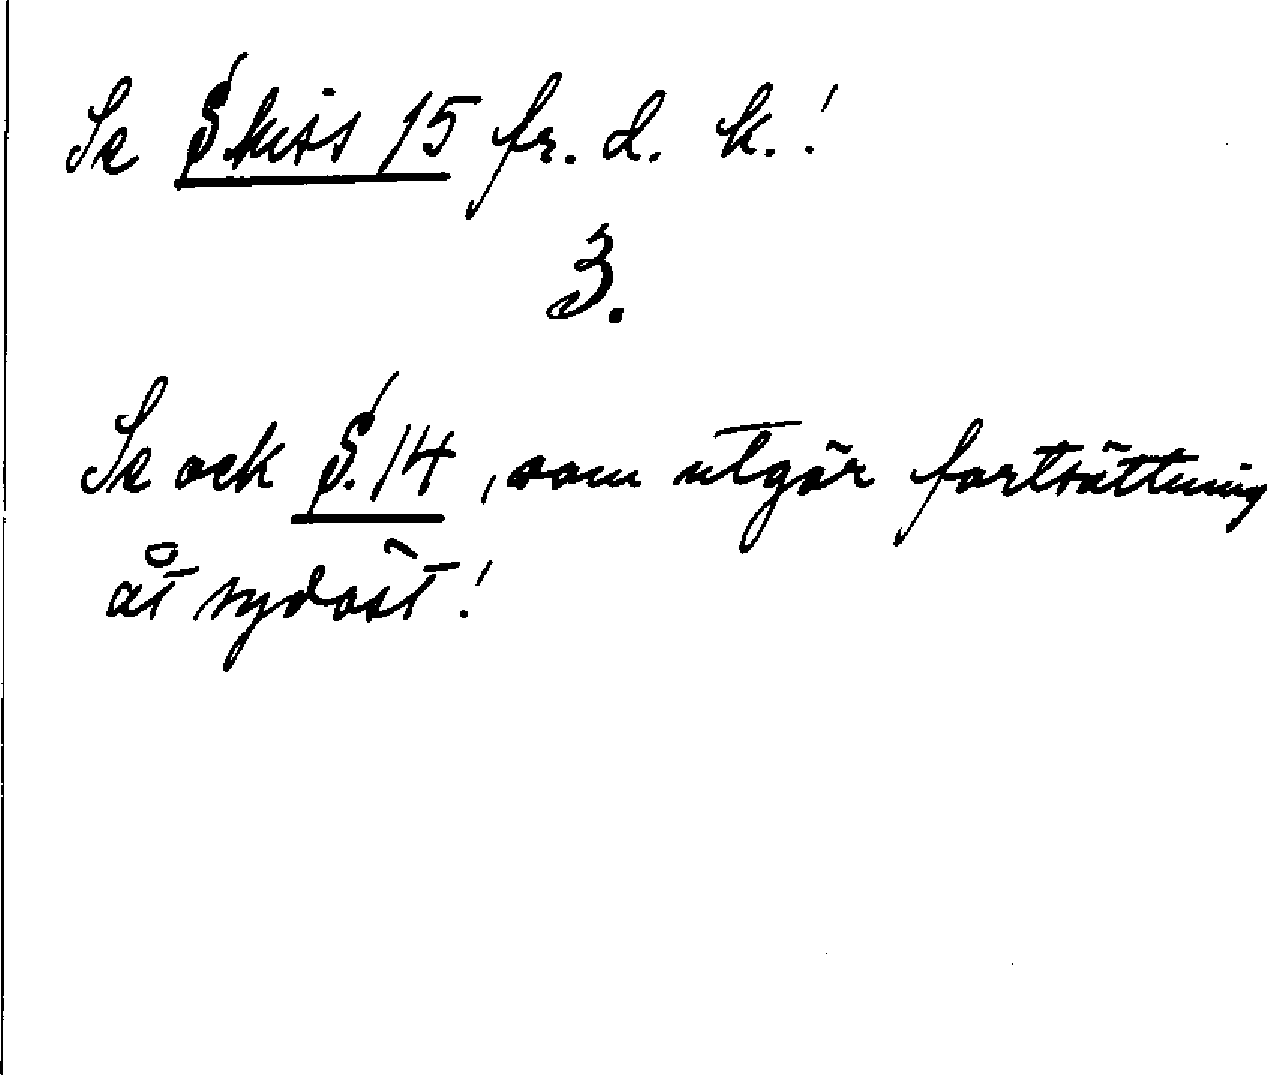 Se Skiss 15 fr. d. k.!
3.
Se ock S. 14, som utgör fortsättning
åt sydost!